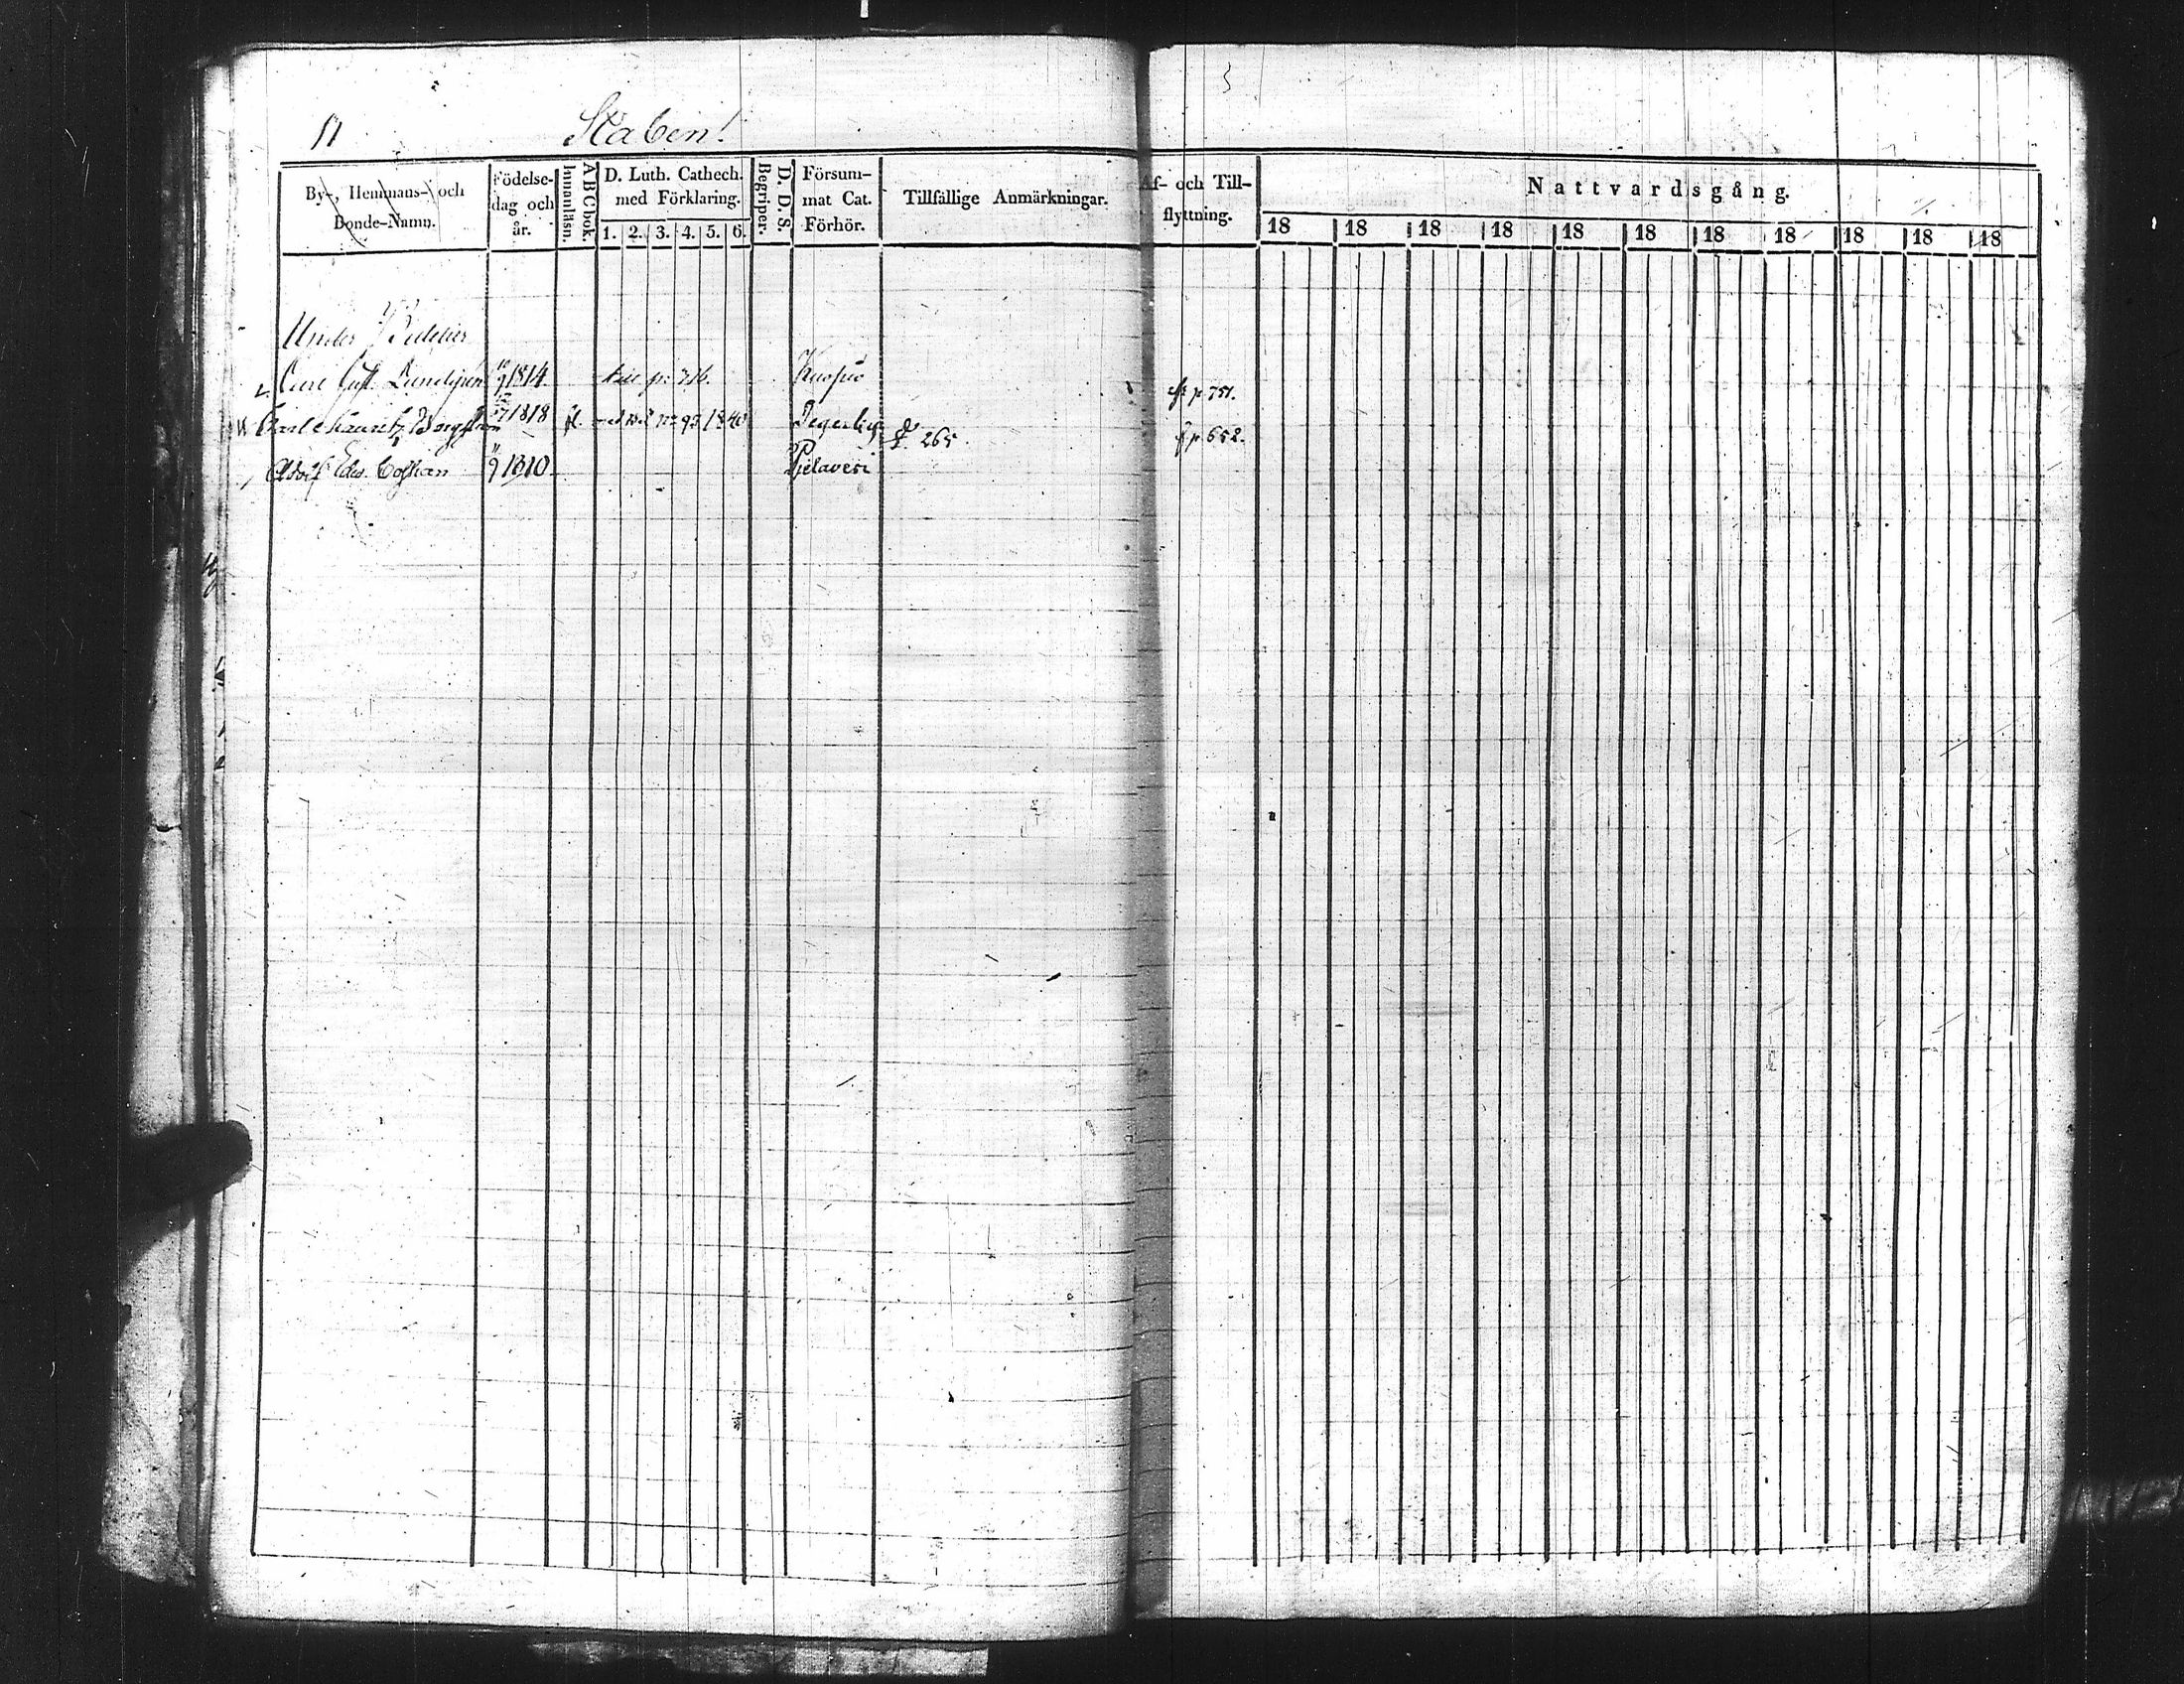 Staben.
By-, Hemmans- och Bonde-Namn.
Födelse-dag och år.
Innanläsn.
A B C bok.
D. Luth. Cathech. med Förklaring.
1. 2. 3. 4. 5. 6.
Begriper.
D. D. S.
Försum-mat Cat. Förhör.
Tillfällige Anmärkningar.
Af- och Till-flyttning.
Nattvardsgång.
18 18 18 18 18 18 18 18 18 18 18
Under
Carl Gust. Lundgren 1814 p. 716. Kuopio p 751.
Carl Mauritz Bergström 1818 fl. 95 1840 Degerby 265 p. 652.
Adolf Edv. 9/11 1810 Pielavesi